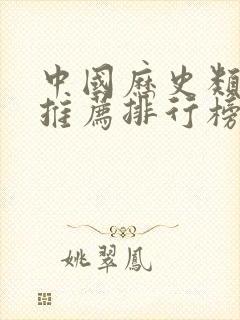 中國歷史類
推薦排行榜
姚翠鳳